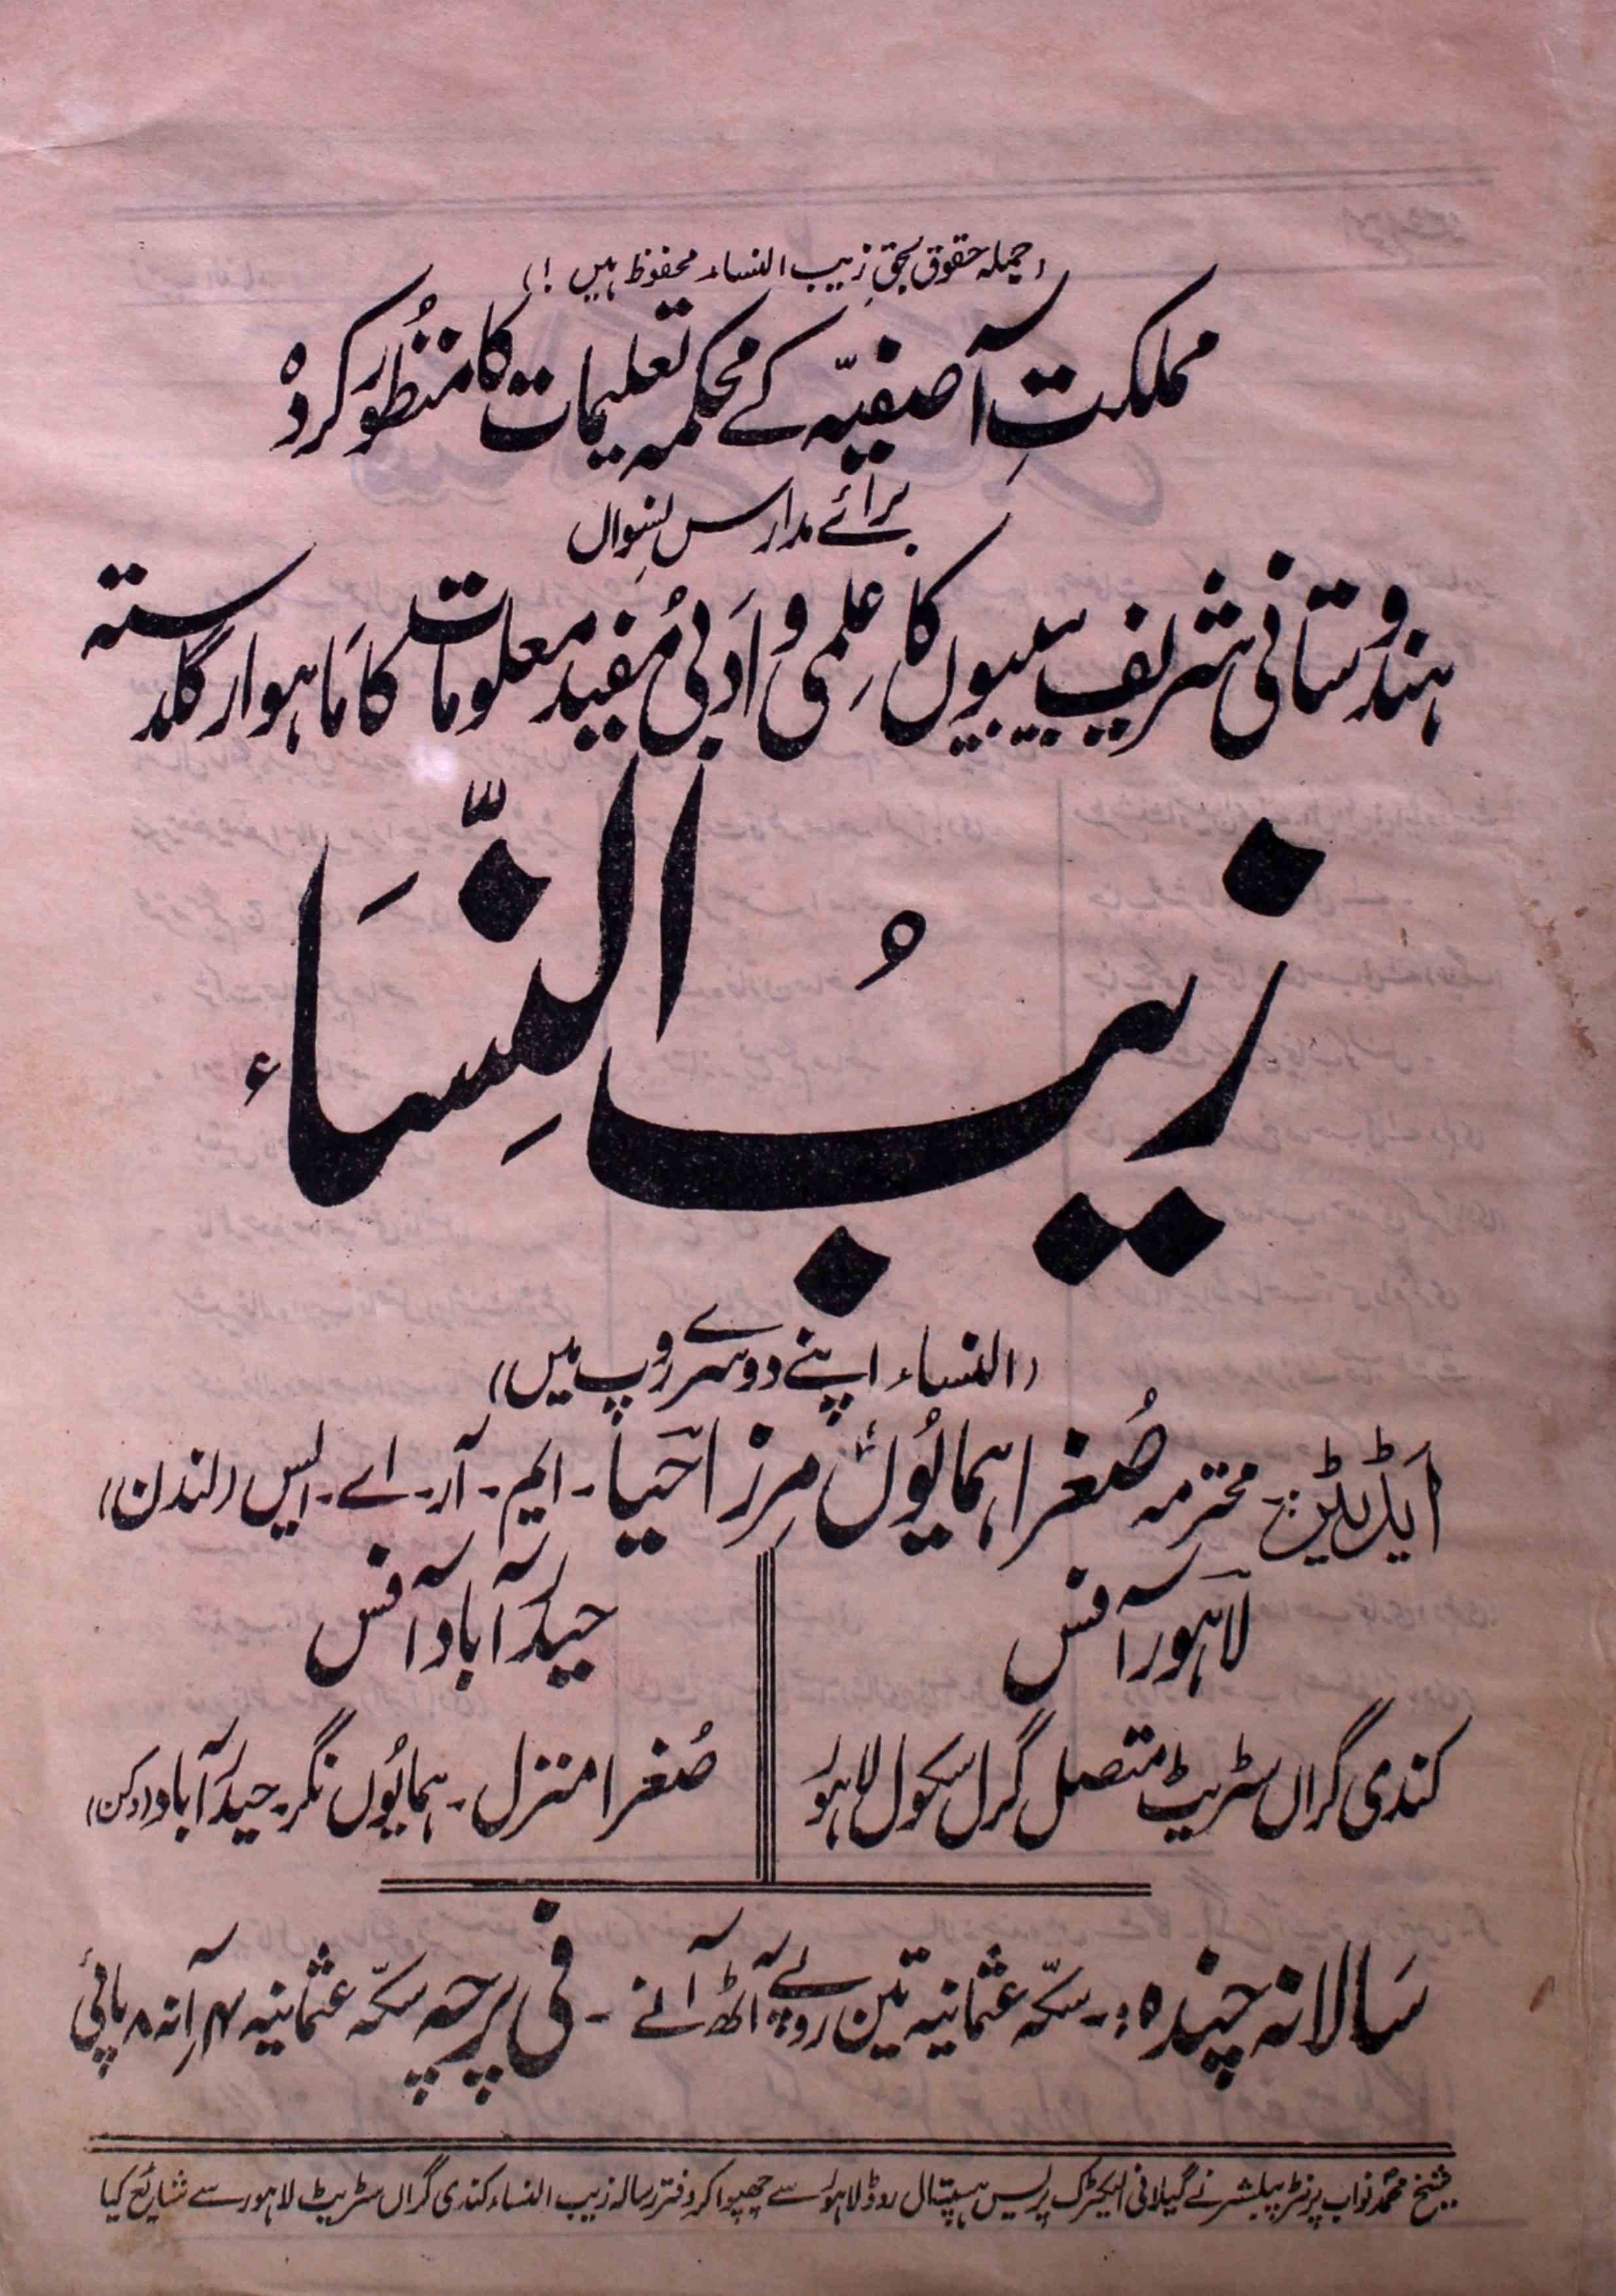 (جملہ حقوق بحقِ زیب النساء محفوظ ہیں !)
مملکتِ آصفیّہ کے محکمہ تعلیمات کا منظُور کردہ
برائے مدارس نِسواں
ہندوستانی شریف بیبیوں کا عِلمی و اَدبی مُفید معلومات کا مَاہوار گلدستہ
زیبُ النِّسَاء
(النساء اپنے دوسرے روپ میں)
اَیڈیٹر:۔ محترمہ صُغرا ہمایُوں مِرزا حَیا۔ ایم۔ آر۔ اے۔ ایس (لندن)
لاہور آفس
حیدرآباد آفس
کندی گراں سٹریٹ متصل گرل سکول لاہور
صُغرا منزل۔ ہمایُوں نگر۔ حیدرآباد (دکن)
سَالانہ چندہ:۔ سکّہ عثمانیہ تین روپے آٹھ آنے ۔ فی پرچہ سکّہ عثمانیہ ۴؍ آنہ ۸ پائی
شیخ محمد نواب پرنٹر پبلشر نے گیلانی الیکٹرک پریس ہسپتال روڈ لاہور سے چھپوا کر دفتر رسالہ زیب النساء کندی گراں سٹریٹ لاہور سے شایٔع کیا